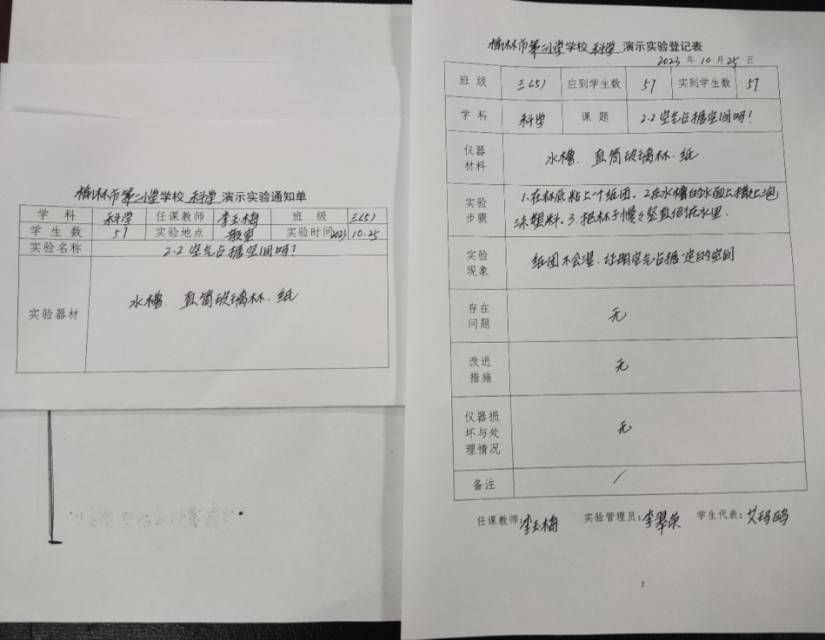 榆林市第二小学学校 科学 演示实验通知单
学 科 科学 任课教师 李玉梅 班 级 三(5)
学生数 57 实验地点 教室 实验时间 2023 10.25
实验名称 2.2 空气占据空间吗?
实验器材 水槽、直筒玻璃杯、纸
学校 科学 演示实验登记表
2023 年 10 月 25 日
班 级 三(5) 应到学生数 57 实到学生数 57
学 科 科学 课 题 2.2 空气占据空间吗?
仪器
材料 水槽、直筒玻璃杯、纸
实验 1.在杯底粘上个纸团。2.在水槽的水面上摆上泡
步骤 沫塑料。3.把杯子慢慢竖直倒在水里。
实验
现象 纸团不会湿,证明空气占据一定的空间
存在
问题 无
改进
措施 无
仪器损
坏与处 无
理情况
备注 /
任课教师: 李玉梅 实验管理员: 学生代表:
2